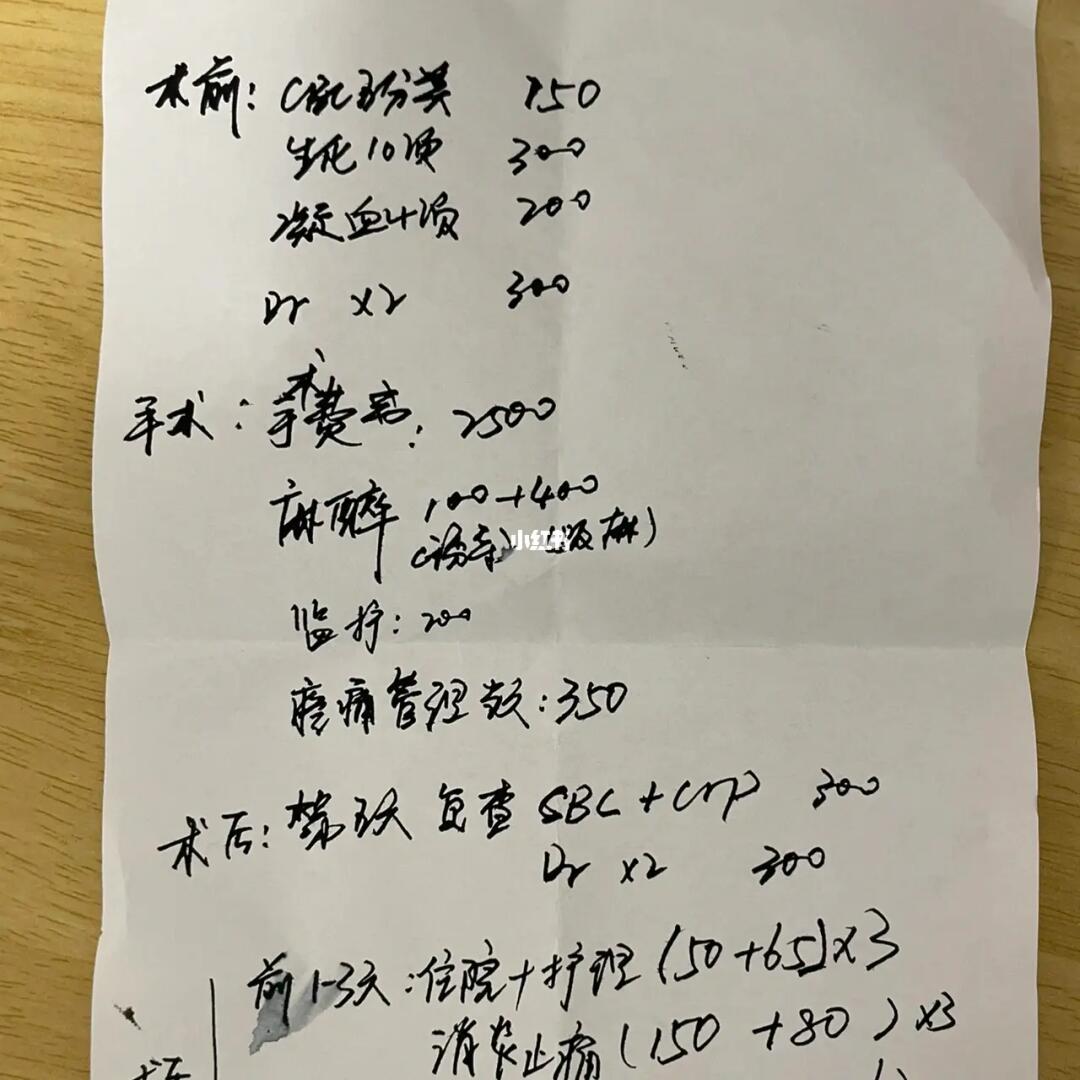 术前: CBC五分类 150
生化10项 300
凝血4项 200
Dr ×2 300
手术: 手术费高: 2500
麻醉 100+400
(诱导) (吸麻)
小红书
监护: 200
疼痛管理: 350
术后: 第五天 复查 SBC + Crp 300
Dr ×2 300
前1-3天: 住院+护理 (50+65)×3
消炎止痛 (150 +80 )×3
术后